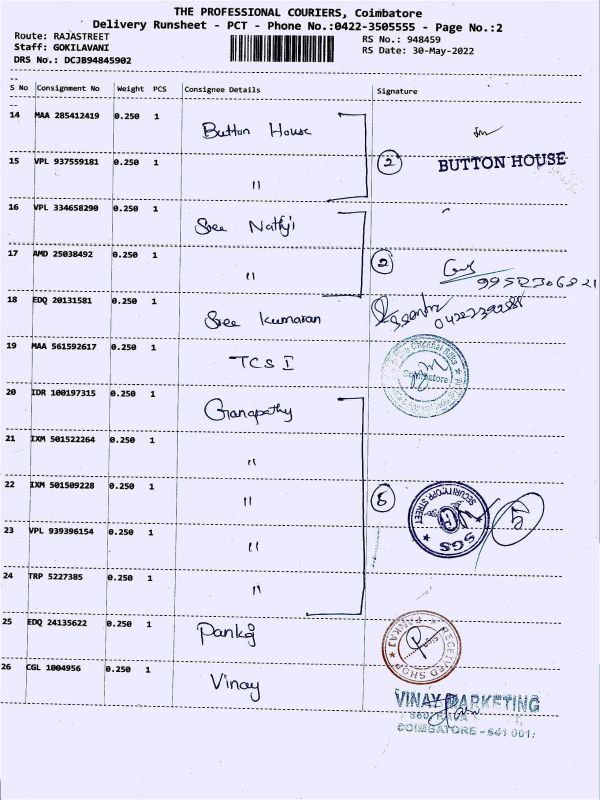 THE PROFESSIONAL COURIERS, Coimbatore
Delivery Runsheet - PCT - Phone No.:0422-3505555 - Page No.:2
Route: RAJASTREET RS No.: 948459
Staff: GOKILAVANI RS Date: 30-May-2022
DRS No.: DCJB94845902
S No Consignment No Weight PCS Consignee Details Signature
14 MAA 285412419 0.250 1 Button House
15 VPL 937559181 0.250 1 " 2 BUTTON HOUSE
16 VPL 334658290 0.250 1 Sree Nathji
17 AMD 25038492 0.250 1 " 2
9952306821
18 EDQ 20131581 0.250 1 Sree Kumaran
19 MAA 561592617 0.250 1 TCS I Coimbatore
20 IDR 100197315 0.250 1 Ganapathy
21 IXM 501522264 0.250 1 "
22 IXM 501509228 0.250 1 " 5 SECURITY OPP STREET SGS 5
23 VPL 939396154 0.250 1 "
24 TRP 5227385 0.250 1 "
25 EDQ 24135622 0.250 1 Pankaj PANKAJ RECEIVED SHOP
26 CGL 1004956 0.250 1 Vinay
VINAY MARKETING
COIMBATORE - 641 001.